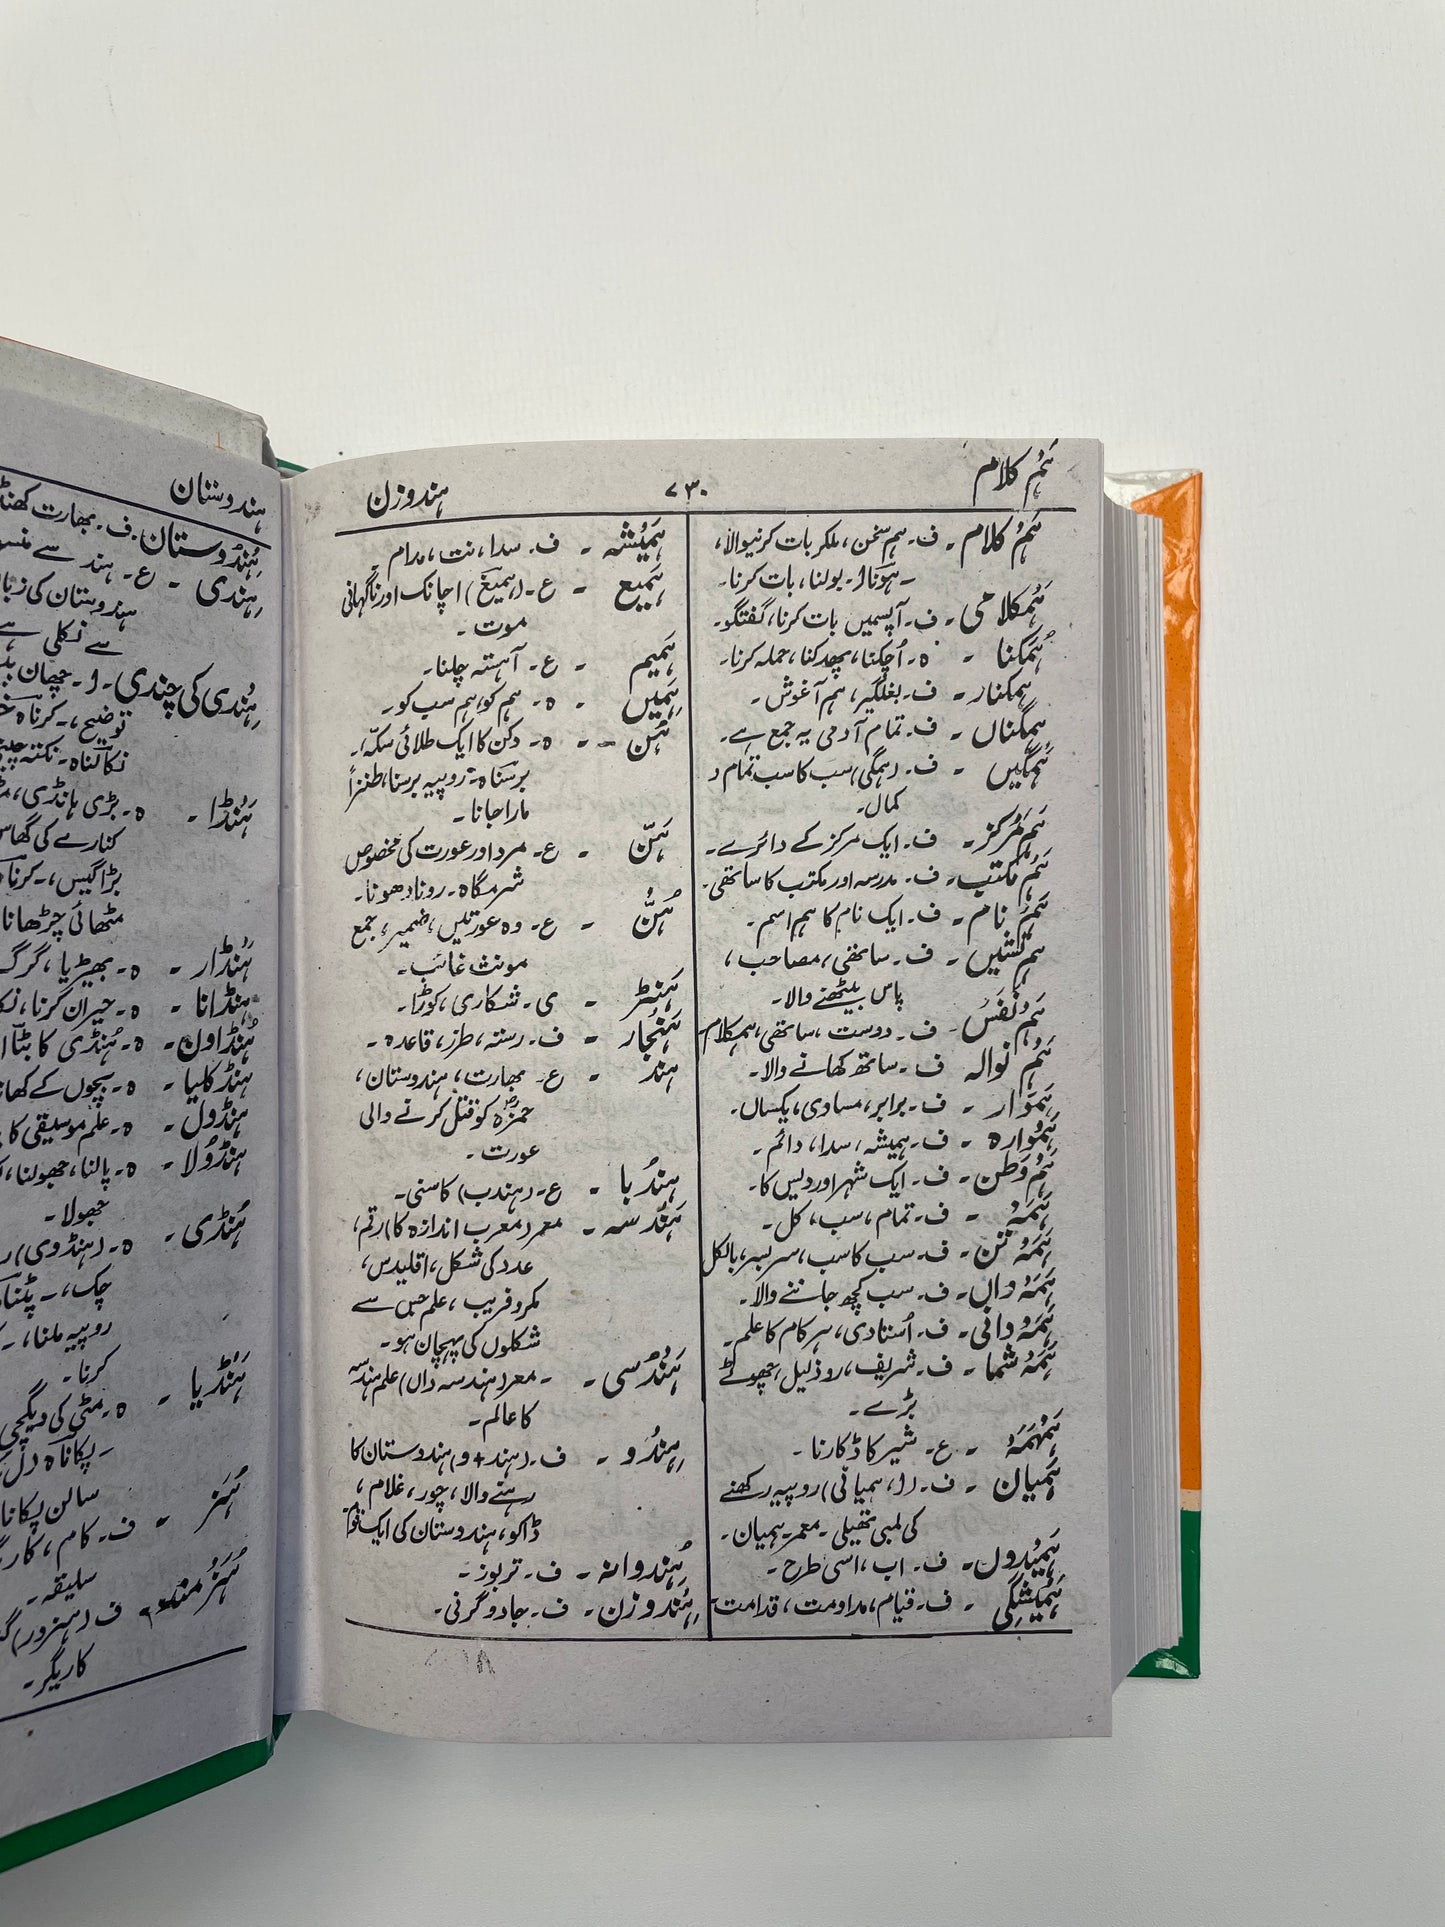 ہم کلام
۷۳۰
ہندوزن
ہَم کلام ۔ ف۔ ہم سخن، ملکر بات کرنیوالا،
۔ ہونا۔ بولنا، بات کرنا۔
ہمکلامی ۔ ف۔ آپسمیں بات کرنا، گفتگو۔
ہُمکنا ۔ ہ۔ اُچکنا، پھدکنا، حملہ کرنا۔
ہمکنار ۔ ف۔ بغلگیر، ہم آغوش۔
ہمگناں ۔ ف۔ تمام آدمی یہ جمع ہے۔
ہَمگیں ۔ ف۔ (ہمگی) سب کا سب تمام و
کمال۔
ہَم مرکز ۔ ف۔ ایک مرکز کے دائرے۔
ہَم مکتب ۔ ف۔ مدرسہ اور مکتب کا ساتھی۔
ہَم نام ۔ ف۔ ایک نام کا ہم اسم۔
ہم نشیں ۔ ف۔ ساتھی، مصاحب،
پاس بیٹھنے والا۔
ہَم نَفَس ۔ ف۔ دوست، ساتھی، ہمکلام۔
ہَم نوالہ ف ۔ ساتھ کھانے والا۔
ہَموَار ۔ ف۔ برابر، مساوی، یکساں۔
ہَموارہ ۔ ف۔ ہمیشہ، سدا، دائم۔
ہَم وَطن ۔ ف۔ ایک شہر اور دیس کا۔
ہَمَہ ۔ ف۔ تمام، سب، کل۔
ہَمَہ تن ۔ ف۔ سب کا سب، سر بسر، بالکل
ہَمَہ داں ۔ ف۔ سب کچھ جاننے والا۔
ہَمَہ دانی ۔ ف۔ اُستادی، ہر کام کا علم۔
ہَمَہ شما ۔ ف۔ شریف، رو ذلیل، چھوٹے
بڑے۔
ہَمہَمَہ ۔ ع۔ شیر کا ڈکارنا۔
ہَمیان ۔ ف۔ (ا، ہمیانی) روپیہ رکھنے
کی لمبی تھیلی۔ معمر۔ ہمیان۔
ہَمیدون ۔ ف۔ اب، اسی طرح۔
ہَمیشگی ۔ ف۔ قیام، مداومت، قدامت۔
ہَمیشہ ۔ ف۔ سدا، نت، مدام۔
ہَمیع ۔ ع۔ (ہمیغ) اچانک اور ناگہانی
موت۔
ہَمیم ۔ ع۔ آہستہ چلنا۔
ہَمیں ۔ ہ۔ ہم کو، ہم سب کو۔
ہُن ۔ ہ۔ دکن کا ایک طلائی سکہ،
برسناہ۔ روپیہ برسنا، طنزاً
مارا جانا۔
ہَنّ ۔ ع۔ مرد اور عورت کی مخصوص
شرمگاہ۔ رونا دھونا۔
ہُنَّ ۔ ع۔ وہ عورتیں، ضمیر، جمع
مونث غائب۔
ہَنٹر ۔ ی۔ شکاری، کوڑا۔
ہَنجار ۔ ف۔ رستہ، طرز، قاعدہ۔
ہند ۔ ع۔ بھارت، ہندوستان،
حمزہؓ کو قتل کرنے والی
عورت۔
ہندُبا ۔ ع۔ (ہندب) کاسنی۔
ہَندسہ ۔ معر (معرب اندازہ کا) رقم،
عدد کی شکل، اقلیدس،
مکر و فریب، علم جس سے
شکلوں کی پہچان ہو۔
ہَندسی ۔ ۔ معر (ہندسہ داں) علم ہندسہ
کا عالم۔
ہِندُو ۔ ف۔ (ہند + و) ہندوستان کا
رہنے والا، چور، غلام،
ڈاکو، ہندوستان کی ایک قوم
ہِندوانہ ۔ ف۔ تربوز۔
ہِندوزن ۔ ف۔ جادوگرنی۔
ہندوستان
ہِندُوستان۔ ف۔ بھارت کھنڈ
ہِندی ۔ ع۔ ہند سے
ہندوستان کی
سے نکلی ہے
ہِندی کی چندی۔ ا۔ چھان
توضیح، ۔ کرناہ
نکالناہ۔ نکتہ
ہَنڈا ۔ ہ۔ بڑی ہانڈی،
کنارے کی گھاس
بڑا گیس، ۔ کرنا
مٹھائی چڑھانا
ہَنڈار ۔ ہ۔ بھیڑیا، گرگ
ہَنڈانا ۔ ہ۔ حیران کرنا،
ہُنڈاون ۔ ہ۔ ہُنڈی کا بٹا
ہَنڈکلیا ۔ ہ۔ بچوں کے
ہنڈول ۔ ہ۔ علم موسیقی کا
ہنڈولا ۔ ہ۔ پالنا، جھولنا،
جھولا۔
ہُنڈی ۔ ہ۔ (ہنڈوی)
چک، ۔ پٹنا
روپیہ ملنا، ۔
کرنا۔
ہَنڈیا ۔ ہ۔ مٹی کی دیگچی
۔ پکاناہ دل
سالن پکانا
ہُنر ۔ ف۔ کام،
سلیقہ۔
ہُنرمند ۔ ف (ہنرور)
کاریگر۔